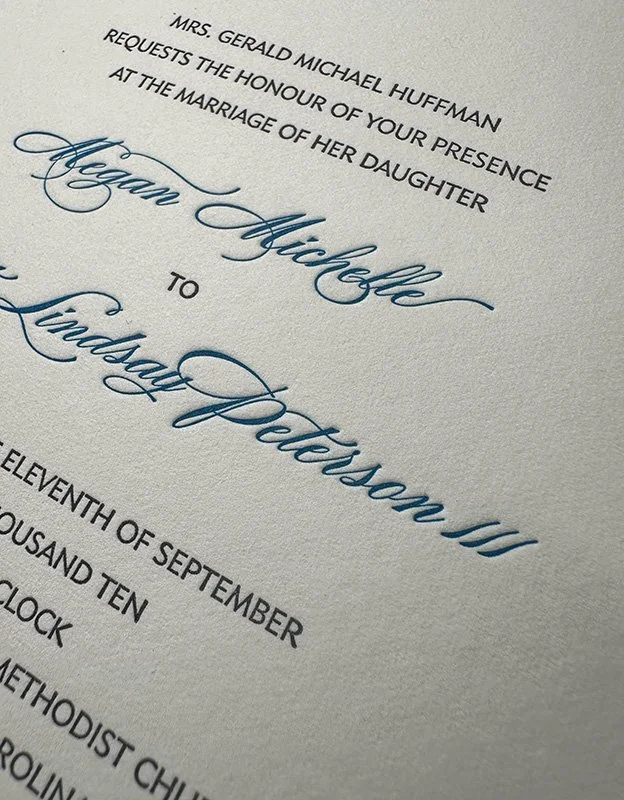 MRS. GERALD MICHAEL HUFFMAN
REQUESTS THE HONOUR OF YOUR PRESENCE
AT THE MARRIAGE OF HER DAUGHTER
Megan Michelle
TO
Lindsay Peterson III
ELEVENTH OF SEPTEMBER
TEN
METHODIST